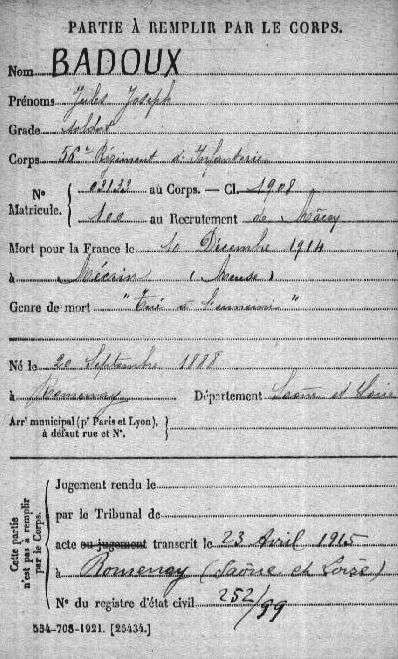 PARTIE À REMPLIR PAR LE CORPS.
Nom BADOUX
Prénoms Jules Joseph
Grade soldat
Corps 56e Régiment d'Infanterie
N° Matricule. { 02133 au Corps. — Cl. 1908
100 au Recrutement de Mâcon
Mort pour la France le 10 Décembre 1914
à Mécrin (Meuse)
Genre de mort "Tué à l'ennemi"
Né le 20 Septembre 1888
à Romenay Département Saône et Loire
Arr' municipal (p' Paris et Lyon), à défaut rue et N°. }
Cette partie n'est pas à remplir par le Corps.
Jugement rendu le
par le Tribunal de
acte ou jugement transcrit le 23 Avril 1915
à Romenay (Saône et Loire)
N° du registre d'état civil 252/99
534-708-1921. [26434.]